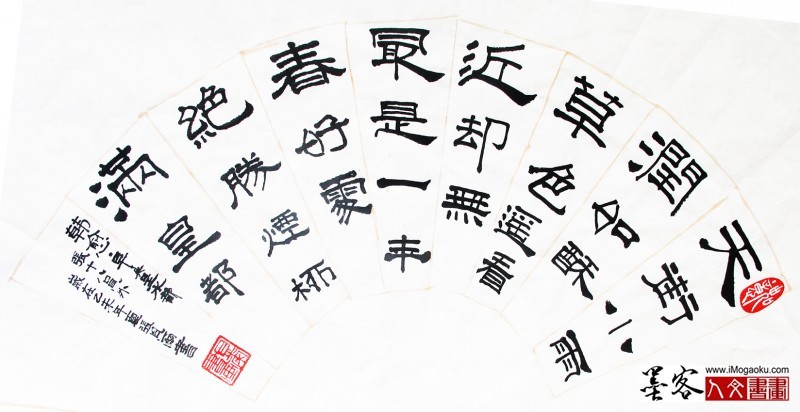 天街小雨
潤如酥
草色遙看
近却無
最是一年
春好處
絶勝煙柳
滿皇都
韓愈早春呈水部
張十八員外
歲在乙未年
墨客
www.iMogaoku.com
人文書畫